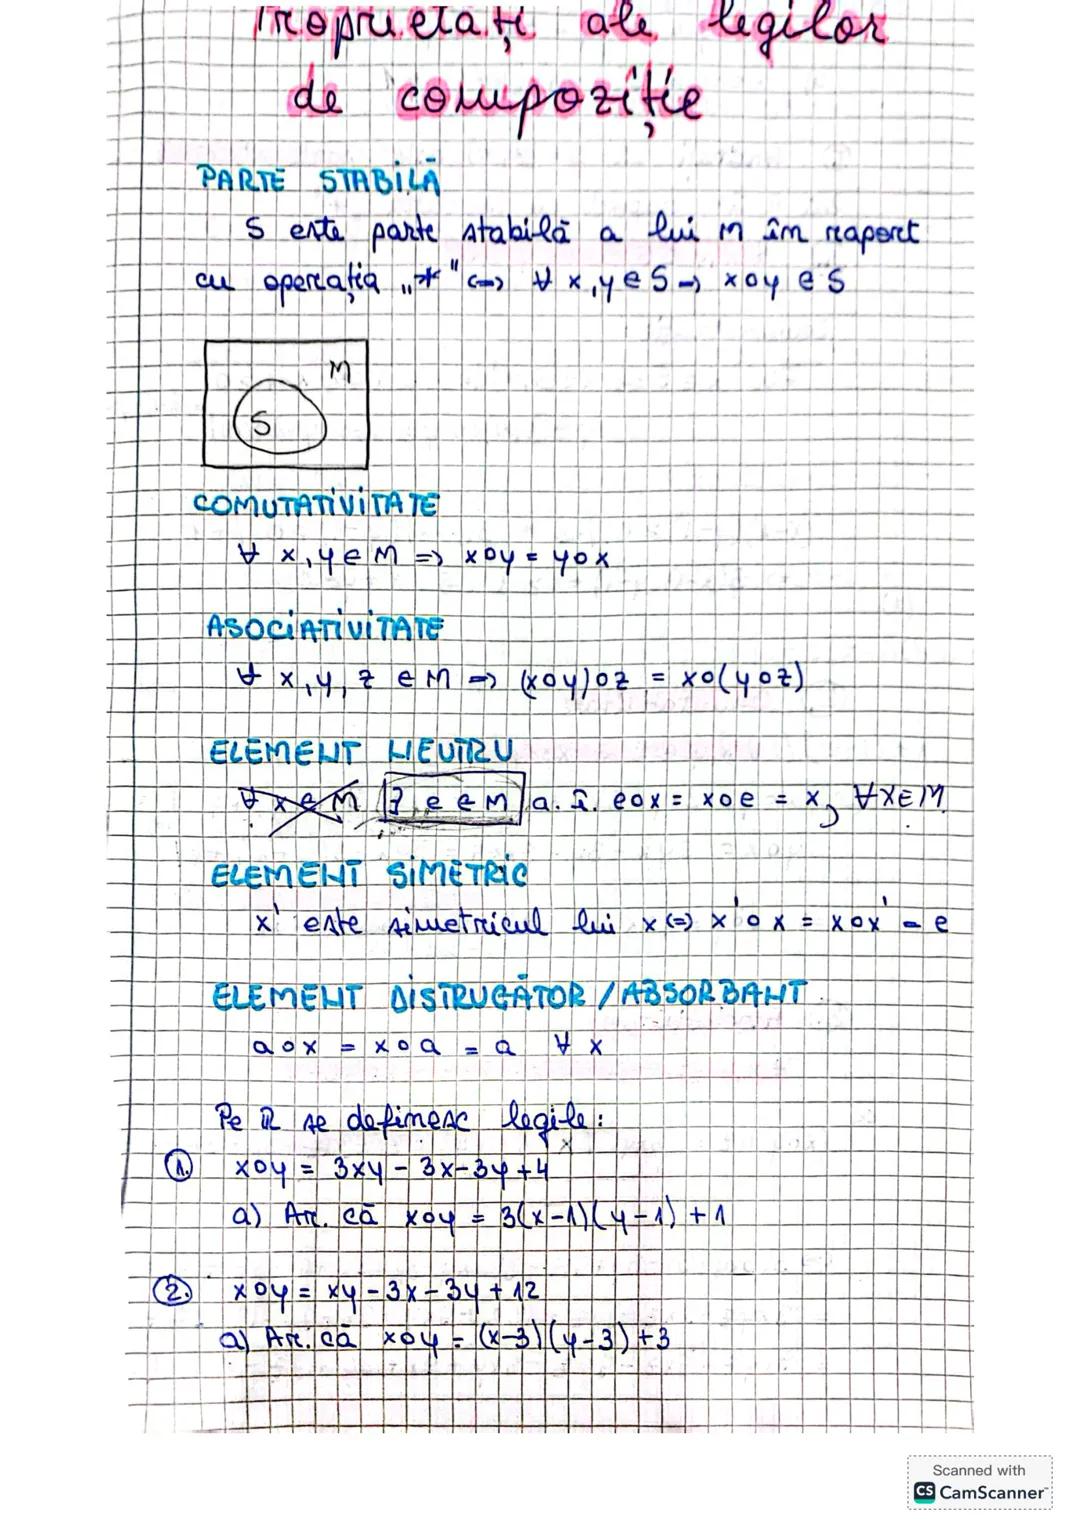 Proprietăți ale legilor
de compoziție
PARTE STABILĂ
S este parte stabilă a lui M în raport
cu operația „*" <=> ∀ x,y e S => xoy e S
M
S
COMUTATIVITATE
∀ x,y e M => xoy = yox
ASOCIATIVITATE
∀ x,y,z e M => (xoy)oz = xo(yoz)
ELEMENT NEUTRU
∀ x e M ∃ e e M a. î. eox = xoe = x, ∀x∈M
ELEMENT SIMETRIC
x' este simetricul lui x <=> x'ox = xox' = e
ELEMENT DISTRUGĂTOR / ABSORBANT
aox = xoa = a ∀ x
Pe ℝ se definesc legile:
1. xoy = 3xy - 3x - 3y + 4
a) Ar. că xoy = 3(x-1)(y-1) + 1
2. xoy = xy - 3x - 3y + 12
a) Ar. că xoy = (x-3)(y-3) + 3
Scanned with
CS CamScanner